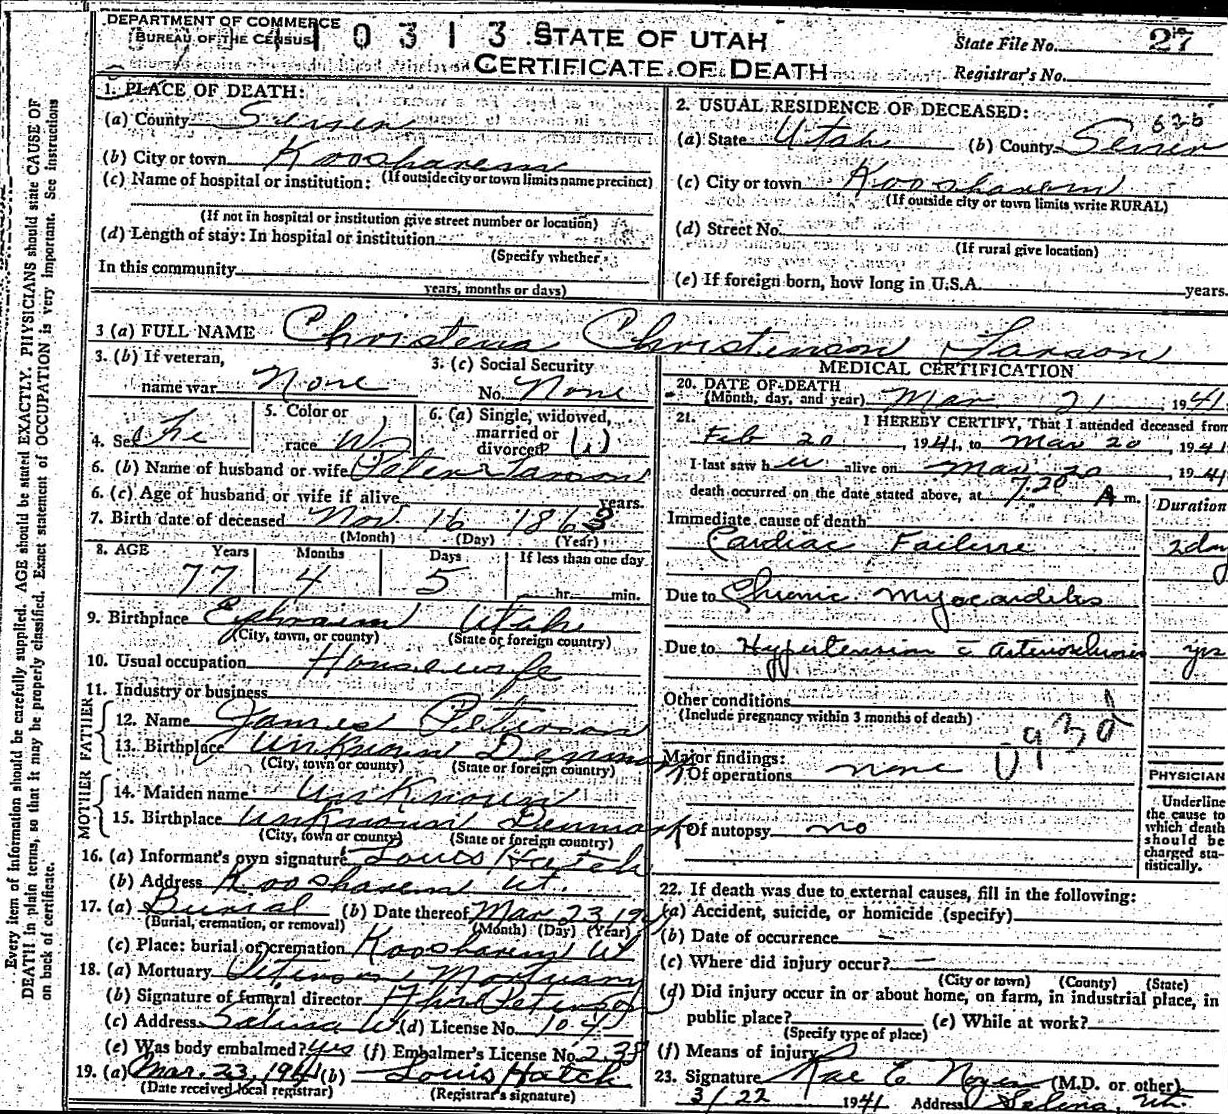 DEPARTMENT OF COMMERCE
BUREAU OF THE CENSUS
1 0 3 1 3
STATE OF UTAH
CERTIFICATE OF DEATH
State File No. 27
Registrar's No.
1. PLACE OF DEATH:
(a) County Sevier
(b) City or town Koosharem
(If outside city or town limits name precinct)
(c) Name of hospital or institution:
(If not in hospital or institution give street number or location)
(d) Length of stay: In hospital or institution
(Specify whether
In this community
years, months or days)
2. USUAL RESIDENCE OF DECEASED:
(a) State Utah (b) County Sevier
(c) City or town Koosharem
(If outside city or town limits write RURAL)
(d) Street No.
(If rural give location)
(e) If foreign born, how long in U.S.A. years.
3 (a) FULL NAME Christena Christenson Larson
3. (b) If veteran, name war None
3. (c) Social Security No. None
4. Sex Fe
5. Color or race W
6. (a) Single, widowed, married or divorced?
6. (b) Name of husband or wife Peter Larson
6. (c) Age of husband or wife if alive years.
7. Birth date of deceased Nov. 16 1863
(Month) (Day) (Year)
8. AGE Years Months Days If less than one day
77 4 5 hr. min.
9. Birthplace Ephraim Utah
(City, town, or county) (State or foreign country)
10. Usual occupation Housewife
11. Industry or business
FATHER
12. Name James Peterson
13. Birthplace Unknown Denmark
(City, town or county) (State or foreign country)
MOTHER
14. Maiden name Unknown
15. Birthplace Unknown Denmark
(City, town or county) (State or foreign country)
16. (a) Informant's own signature Louis Hatch
(b) Address Koosharem Ut.
17. (a) Burial (b) Date thereof Mar 23 194
(Burial, cremation, or removal) (Month) (Day) (Year)
(c) Place: burial or cremation Koosharem Ut
18. (a) Mortuary Peterson Mortuary
(b) Signature of funeral director
(c) Address Salina Ut. (d) License No.
(e) Was body embalmed? yes (f) Embalmer's License No.
19. (a) Mar. 23, 1941 (b) Louis Hatch
(Date received local registrar) (Registrar's signature)
MEDICAL CERTIFICATION
20. DATE OF DEATH
(Month, day, and year) Mar 21 1941
21. I HEREBY CERTIFY, That I attended deceased from
Feb 20, 1941, to Mar 20, 1941
I last saw her alive on Mar 20, 1941
death occurred on the date stated above, at 7:20 A m.
Duration
Immediate cause of death
Cardiac Failure 2 day
Due to Chronic Myocarditis
Due to Hypertension c̄ arteriosclerosis yrs
Other conditions
(Include pregnancy within 3 months of death)
Major findings:
Of operations none
Of autopsy no
PHYSICIAN
Underline the cause to which death should be charged statistically.
22. If death was due to external causes, fill in the following:
(a) Accident, suicide, or homicide (specify)
(b) Date of occurrence
(c) Where did injury occur?
(City or town) (County) (State)
(d) Did injury occur in or about home, on farm, in industrial place, in
public place? (e) While at work?
(Specify type of place)
(f) Means of injury
23. Signature Rae E Noyes (M.D. or other)
3/22 1941 Address Salina, Ut.
Every item of information should be carefully supplied. AGE should be stated EXACTLY. PHYSICIANS should state CAUSE OF
DEATH in plain terms, so that it may be properly classified. Exact statement of OCCUPATION is very important. See instructions
on back of certificate.